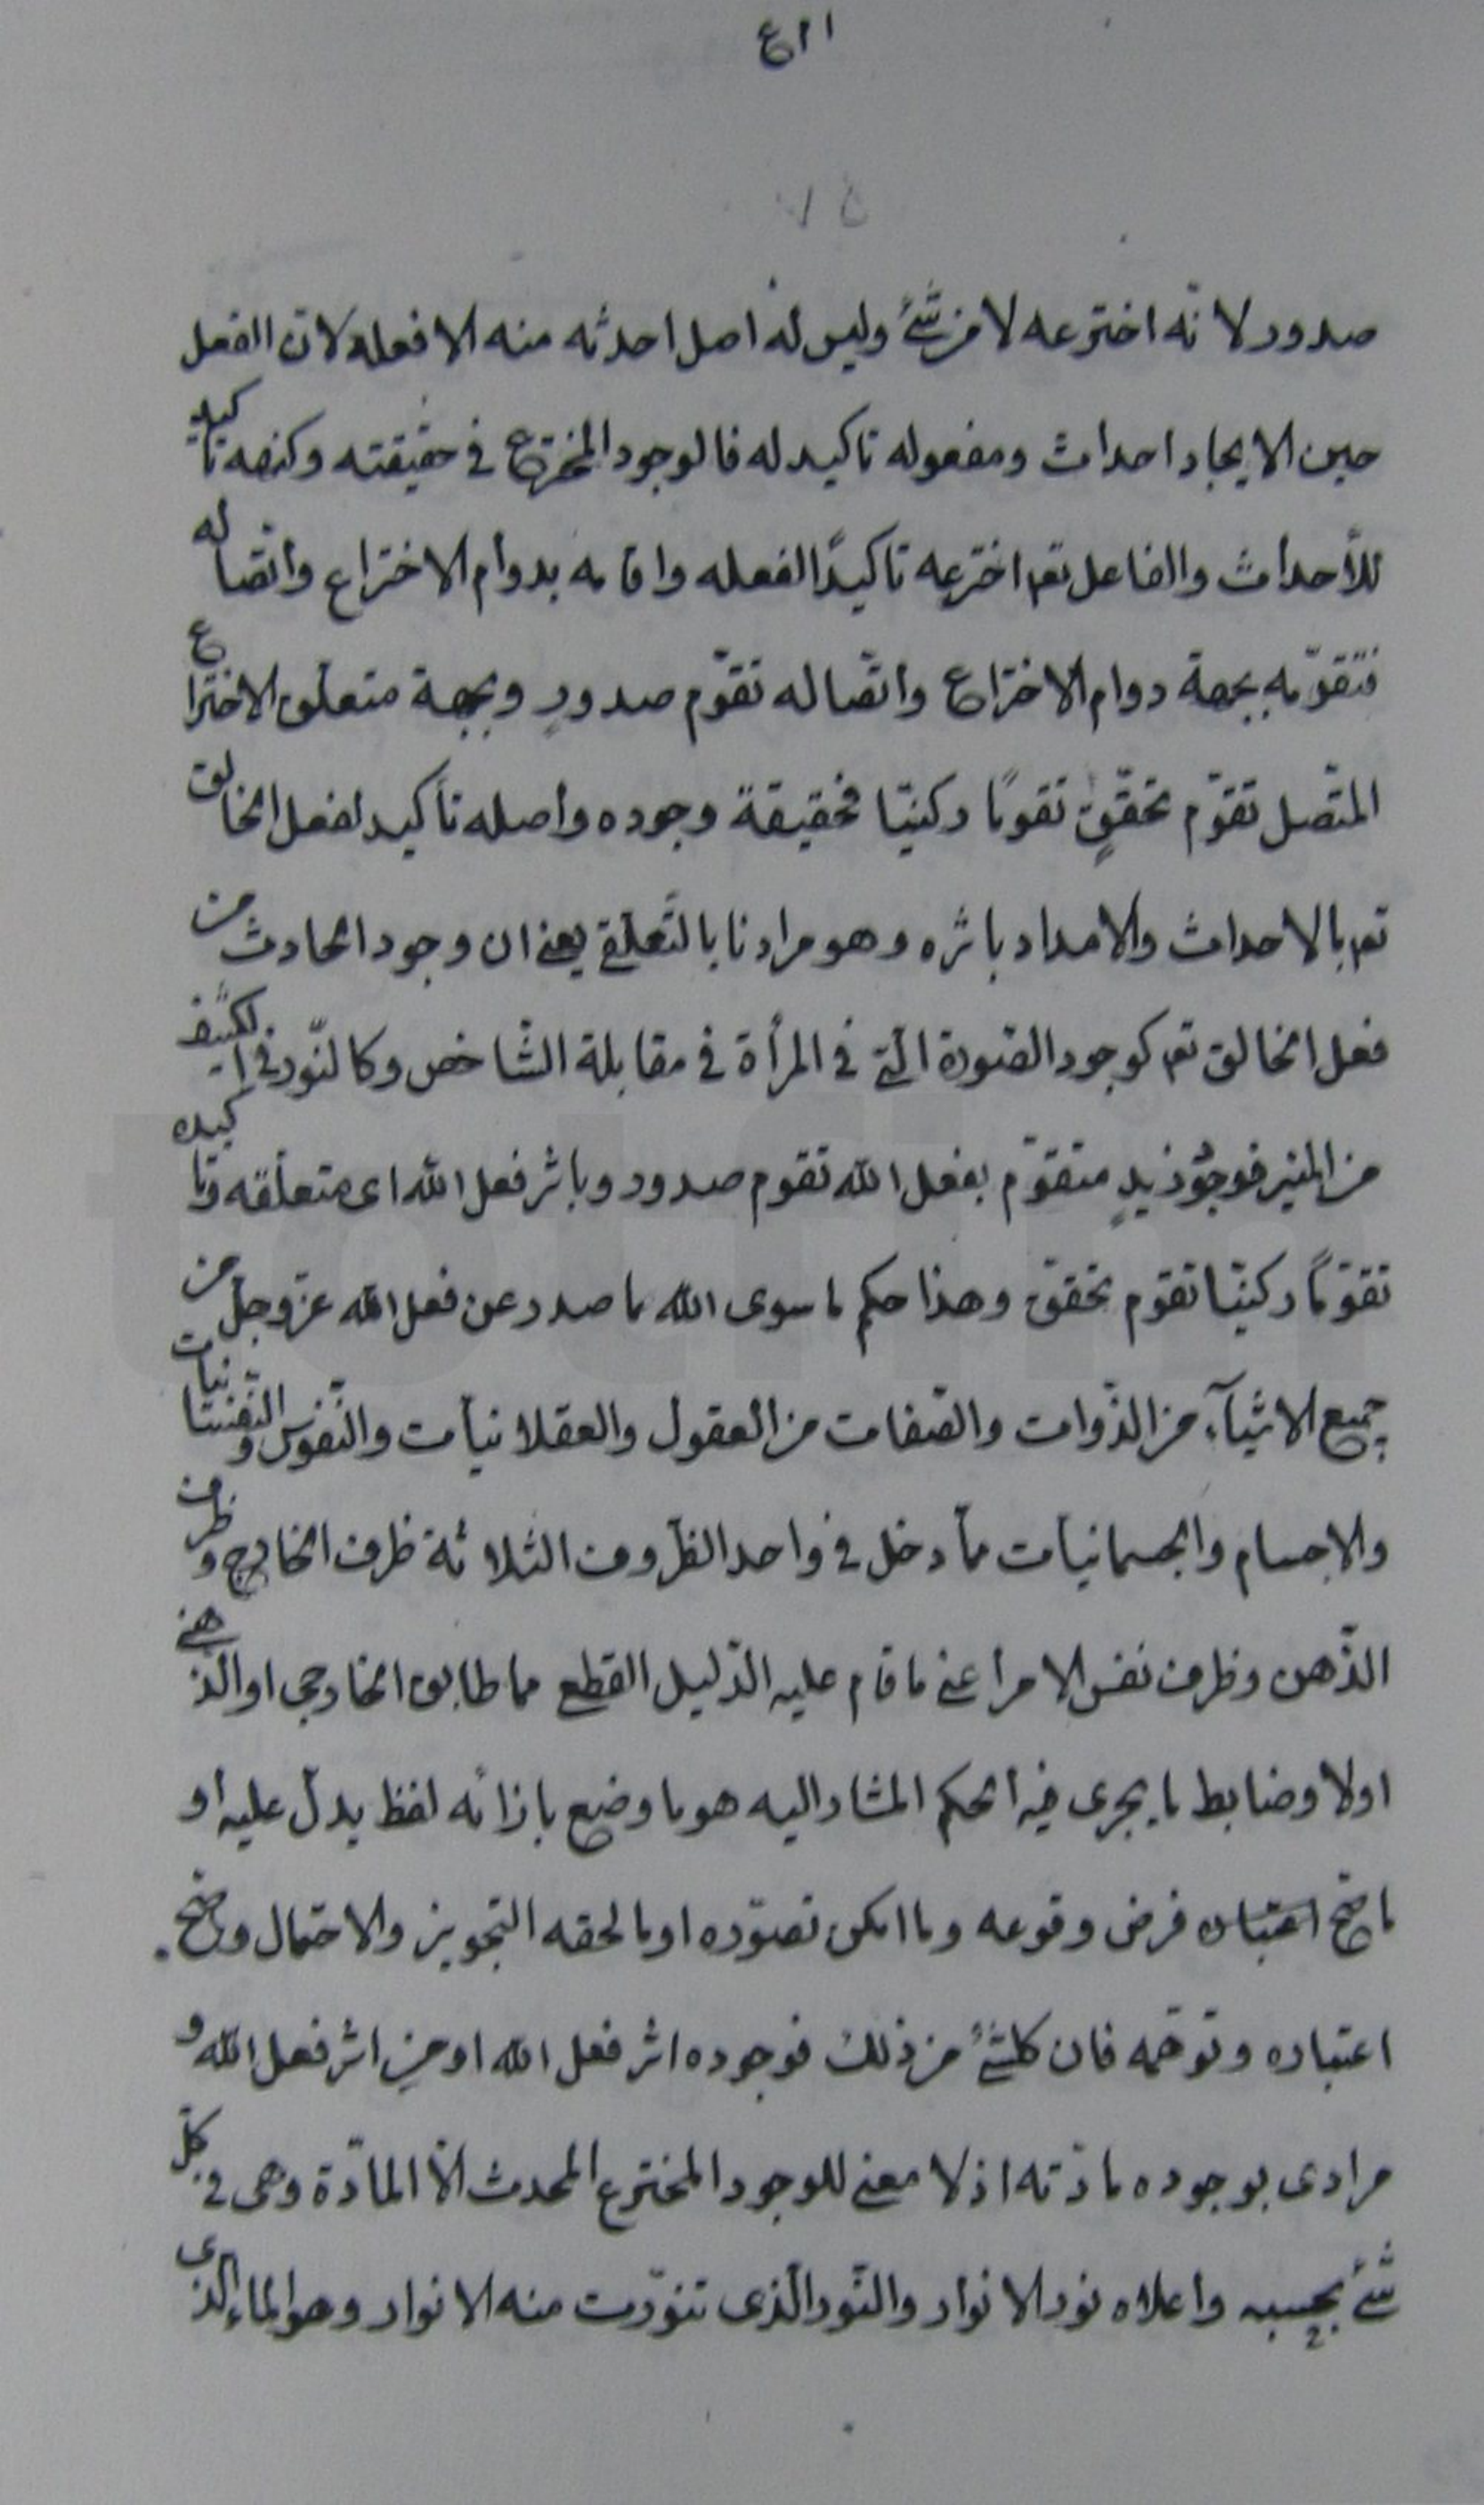 ٤١١
٧٥
صدور لانّه اخترعه لا من شئ وليس له اصل احدثه منه الا فعله لان الفعل
حين الايجاد احداث ومفعوله تاكيد له فالوجود المخترع في حقيقته وكنهه تاكيد
للأحداث والفاعل تعم اخترعه تاكيدًا لفعله واقامه بدوام الاختراع واتّصاله
فتقوّمه بجهة دوام الاختراع واتّصاله تقوّم صدورٍ وبجهة متعلق الاختراع
المتّصل تقوّم تحققٍ تقومًا ركنيّا فحقيقة وجوده واصله تأكيد لفعل الخالق
تعم بالاحداث والامداد باثره وهو مرادنا بالتّعلّق يعني ان وجود الحادث من
فعل الخالق تعم كوجود الصّورة الّتي في المرأة في مقابلة الشّاخص وكالنّور في الكثيف
من المنير فوجود زيدٍ متقوّم بفعل الله تقوم صدور وباثر فعل الله اى متعلّقه وتاكيده
تقوّمًا ركنيّا تقوّم تحقق وهذا حكم ما سوى الله ما صدر عن فعل الله عزّوجلّ من
جميع الاشيآء من الذّوات والصّفات من العقول والعقلانيات والنّفوس والنّفسانيات
والاجسام والجسمانيات ممّا دخل في واحد الظّروف الثلاثة ظرف الخارج وظرف
الذّهن وظرف نفس الامر اعني ما قام عليه الدّليل القطعي مما طابق الخارجى او الذّهني
اولا وضابط ما يجرى فيه الحكم المشار اليه هو ما وضع بازائه لفظ يدلّ عليه او
ما صحّ اعتباره فرض وقوعه وما امكن تصوّره او ما لحقه التجويز والاحتمال وصحّ
اعتباره وتوهّمه فان كلشئ من ذلك فوجوده اثر فعل الله او من اثر فعل الله و
مرادى بوجوده مادّته اذ لا معنى للوجود المخترع المحدث الّا المادّة وهى في كلّ
شئ بحسبه واعلاه نور الانوار والنّور الّذى تنوّرت منه الانوار وهو الماء الذى